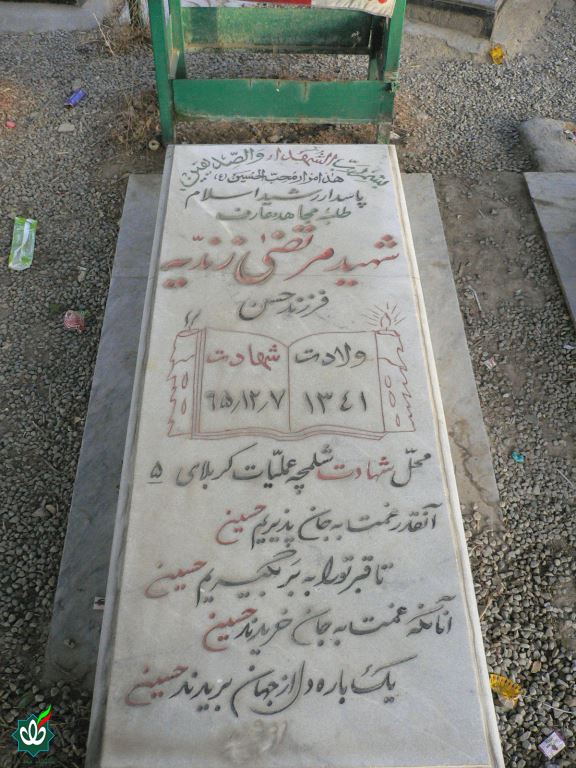 بسمت الشهداء والصدیقین
هذا مزار محب الحسین (ع)
پاسدار رشید اسلام
طلبه مجاهد عارف
شهید مرتضی زندیه
فرزند حسن
ولادت شهادت
۱۳۴۱ ۶۵/۱۲/۷
محل شهادت شلمچه عملیات کربلای ۵
آنقدر غمت به جان پذیریم حسین
تا قبر تو را به بر بگیریم حسین
آنانکه غمت به جان خریدند حسین
یک باره دل از جهان بریدند حسین